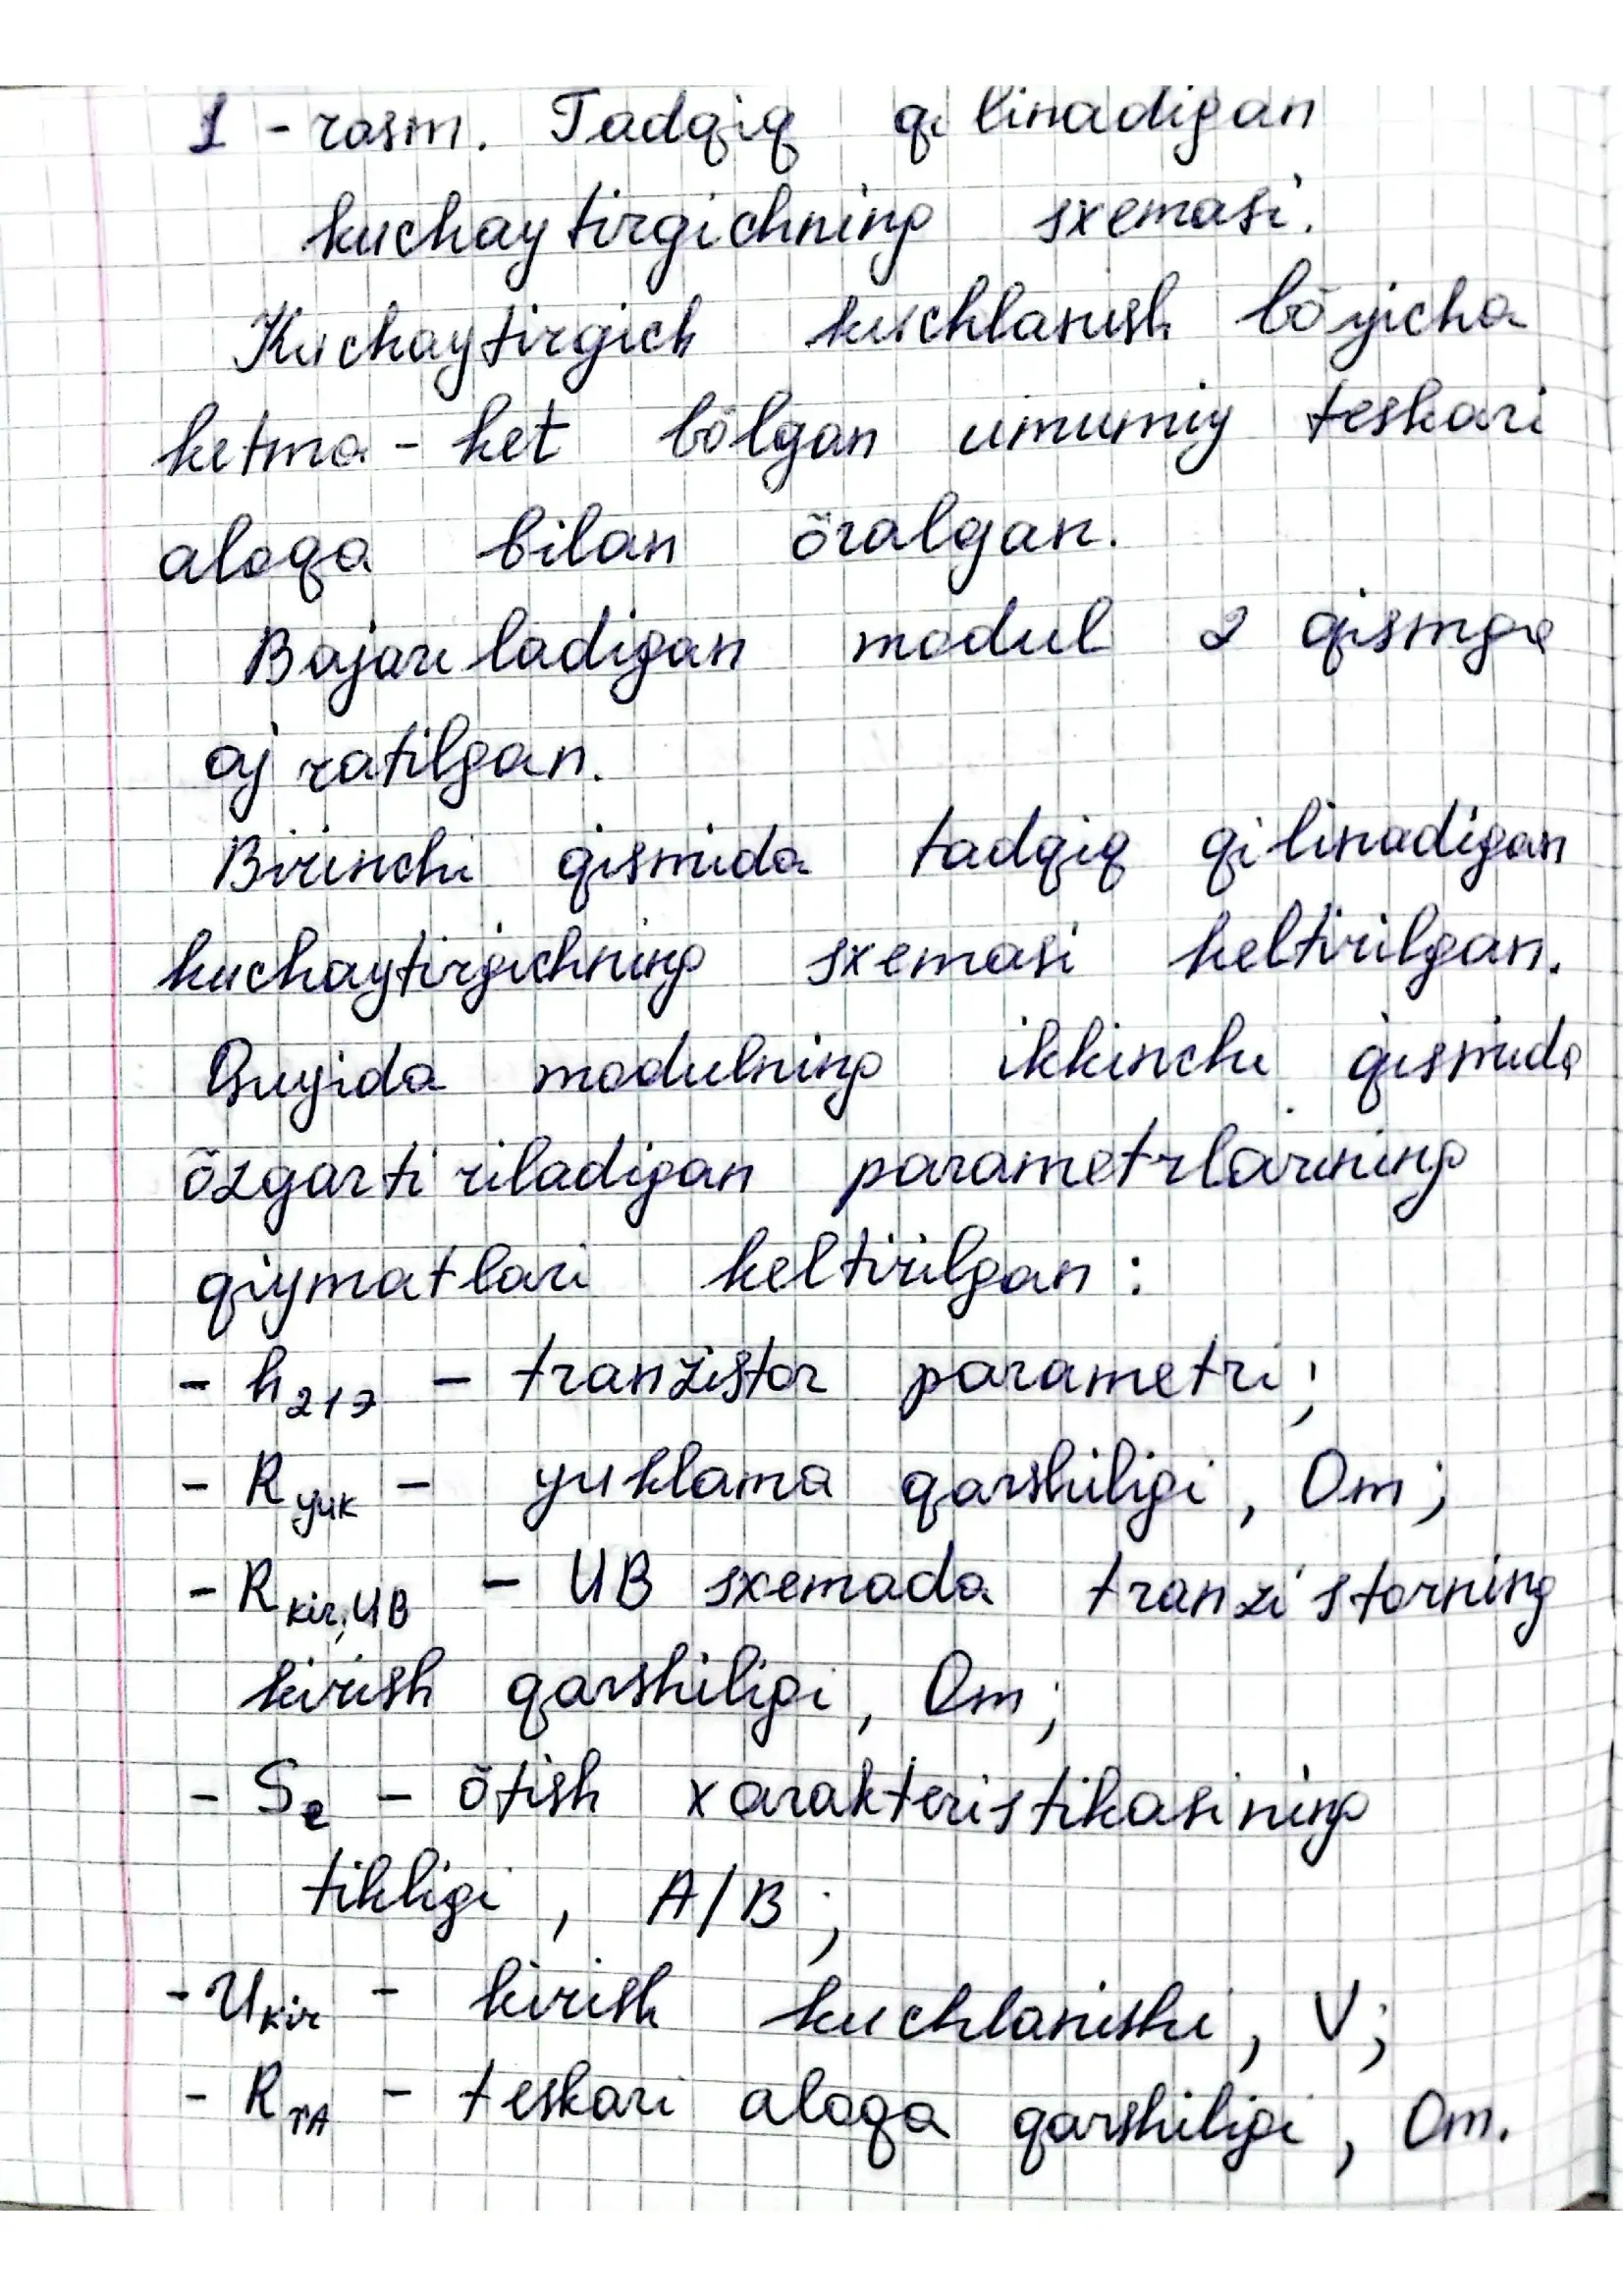 1 - rasm. Tadqiq qilinadigan
kuchaytirgichning sxemasi.
Kuchaytirgich kuchlanish bõyicha
ketma - ket bõlgan umumiy teskari
aloqa bilan õralgan.
Bajariladigan modul 2 qismga
ajratilgan.
Birinchi qismida tadqiq qilinadigan
kuchaytirgichning sxemasi keltirilgan.
Quyida modulning ikkinchi qismida
õzgartiriladigan parametrlarining
qiymatlari keltirilgan :
- h₂₁э - tranzistor parametri;
- Ryuk - yuklama qarshiligi, Om;
- Rkir,UB - UB sxemada tranzistorning
kirish qarshiligi, Om;
- Se - õtish xarakteristikasining
tikligi, A/B;
- Ukir - kirish kuchlanishi, V;
- RTA - teskari aloqa qarshiligi, Om.